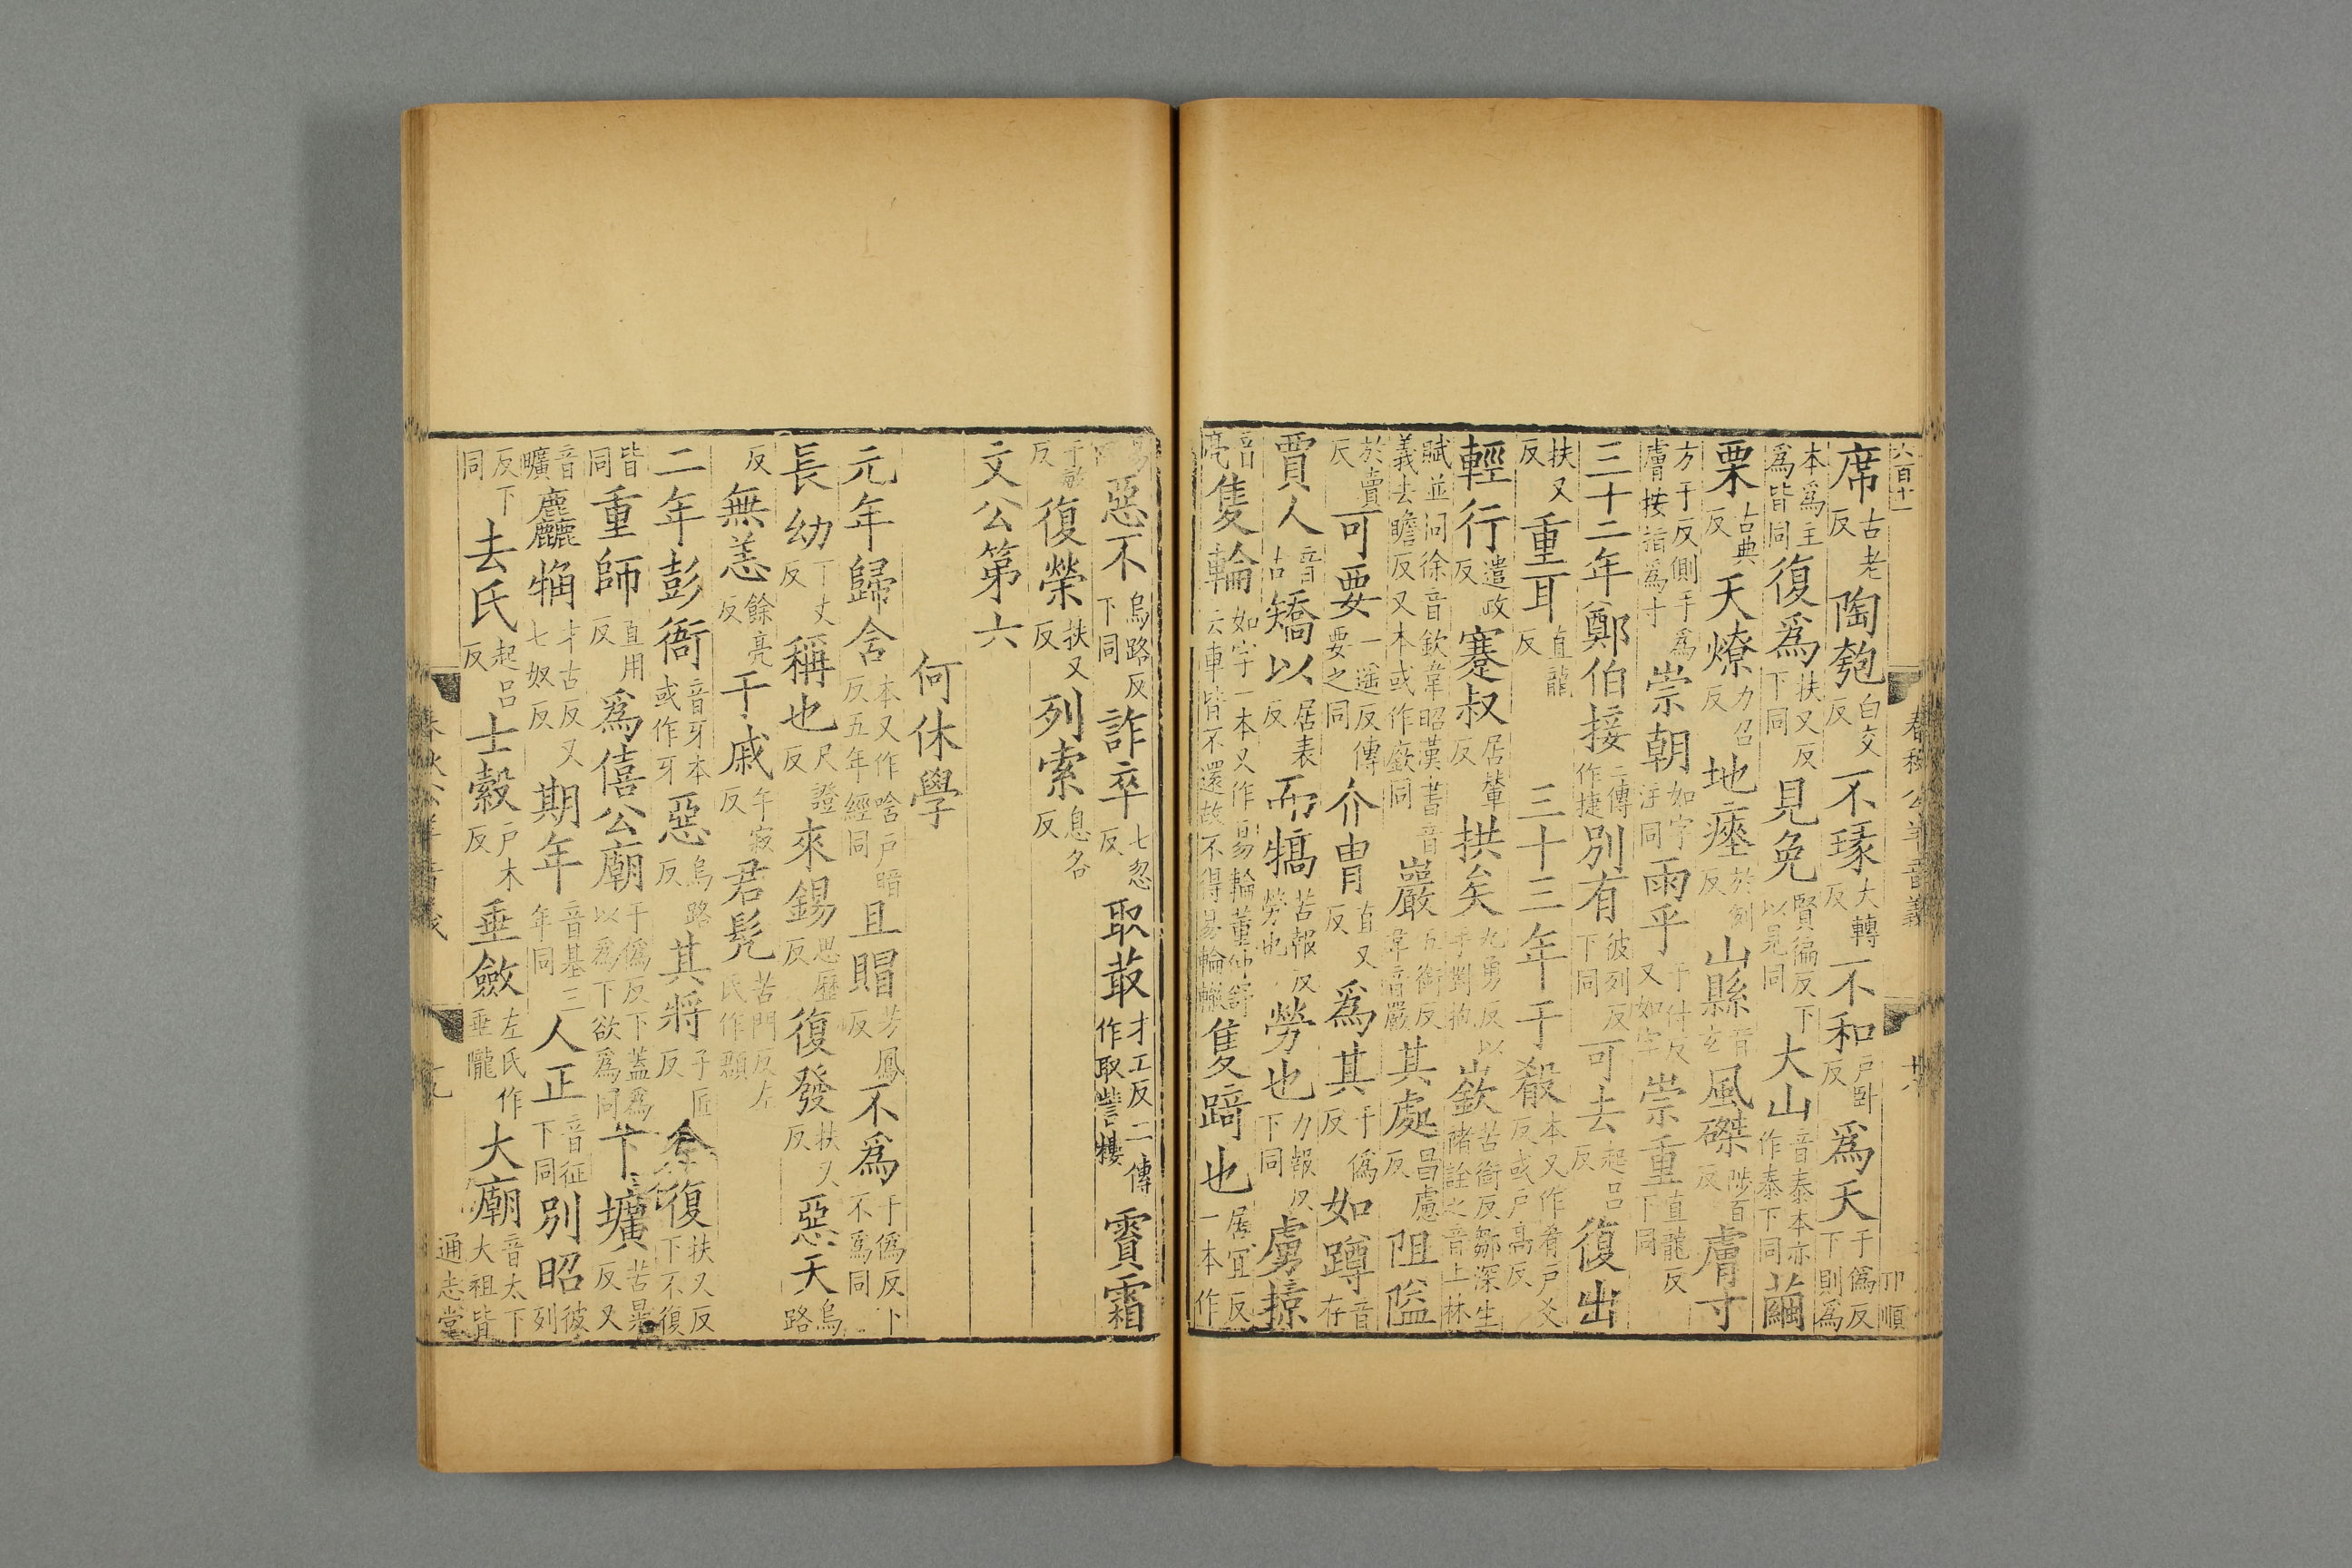 六百十一
春秋公羊音義
卯順
席古老反陶匏白交反不瑑大轉反不和戶卧反爲天于僞反下則爲
本爲主爲皆同復爲扶又反下同見免賢徧反下以見同大山音泰本亦作泰下同繭
栗古典反天燎力召反地瘞於例反山縣音玄風磔陟百反膚寸
方于反側手爲膚按指爲寸崇朝如字注同雨乎于付反又如字崇重直龍反下同
三十二年鄭伯接二傳作捷別有彼列反下同可去起呂反復出
扶又反重耳直龍反三十三年于殽本又作肴戶爻反或戶高反
輕行遣政反蹇叔居輦反拱矣九勇反以手對抱嶔苦銜反鄒深生褚詮之音上林
賦並同徐音欽韋昭漢書音義去瞻反又本或作廞同巖五銜反韋音嚴其處昌慮反阻隘
於賣反可要一遥反傳要之同介冑直又反爲其于僞反如蹲音存
賈人音古矯以居表反而犒苦報反勞也勞也力報反下同虜掠
音亮隻輪如字一本又作易輪董仲舒云車皆不還故不得易輪轍隻踦也居宜反一本作
易惡不烏路反下同詐卒七忽反取菆才工反二傳作取訾樓霣霜
于敏反復榮扶又反列索息各反
文公第六
何休學
元年歸含本又作唅戶暗反五年經同且賵芳鳳反不爲于僞反下不爲同
長幼丁丈反稱也尺證反來錫思歷反復發扶又反惡天烏路
反無恙餘亮反于戚午寂反君髡苦門反左氏作頵
二年彭衙音牙本或作牙惡烏路反其將子匠反今復扶又反下不復
皆同重師直用反爲僖公廟于僞反下蓋爲以爲下欲爲同下壙苦晃反又
音曠麤觕才古反又七奴反期年音基三年同人正音征下同別昭彼列
反下同去氏起呂反士縠戶木反垂斂左氏作垂隴大廟音太下大祖皆
同
通志堂